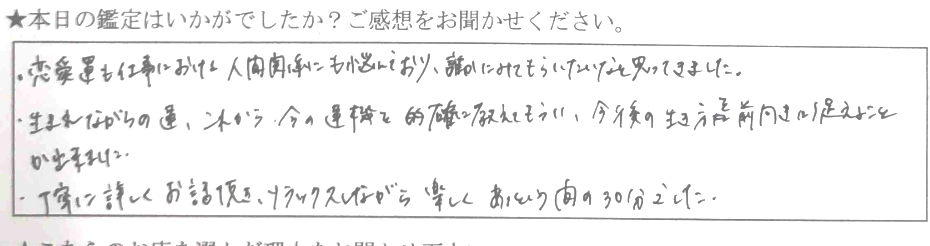 ★本日の鑑定はいかがでしたか？ご感想をお聞かせください。
・恋愛運も仕事における人間関係にも悩んでおり、誰かにみてもらいたいなと思ってきました。
・生まれながらの運、これから今の運機を的確に教えてもらい、今後の生き方を前向きに捉えること
が出来ました。
・丁寧に詳しくお話頂き、リラックスしながら楽しくあっという間の30分でした。